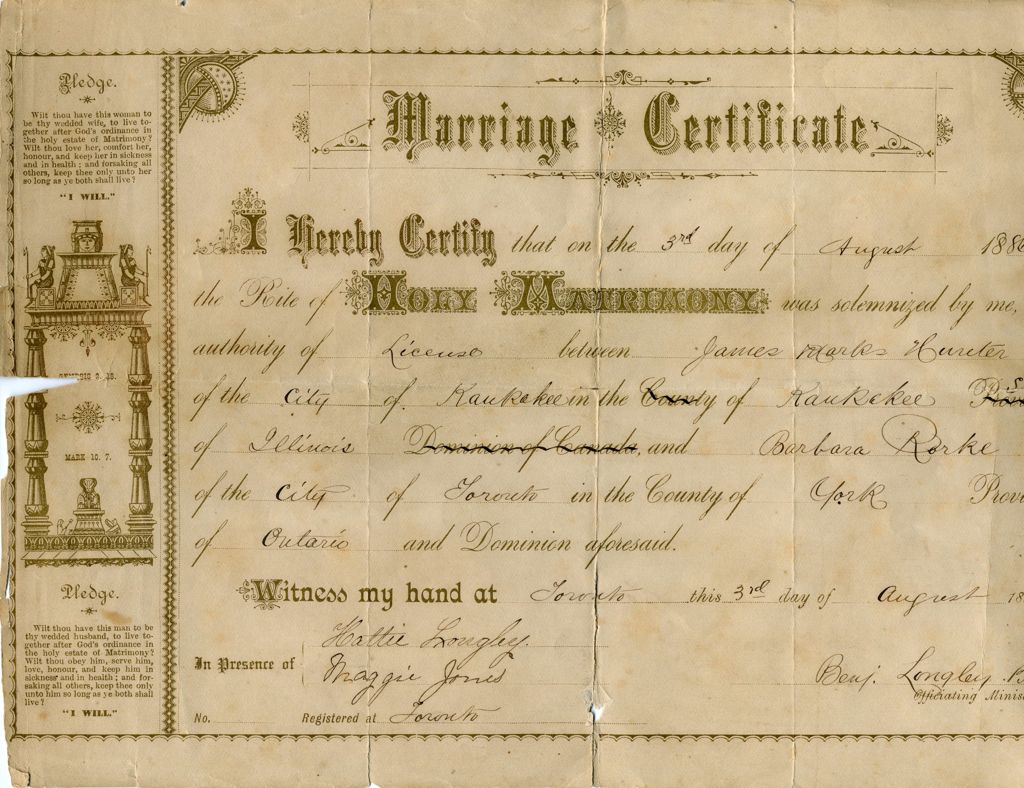 Pledge.
Wilt thou have this woman to
be thy wedded wife, to live to-
gether after God's ordinance in
the holy estate of Matrimony?
Wilt thou love her, comfort her,
honour, and keep her in sickness
and in health; and forsaking all
others, keep thee only unto her
so long as ye both shall live?
"I WILL."
GENESIS 2. 18.
MARK 10. 7.
Pledge.
Wilt thou have this man to be
thy wedded husband, to live to-
gether after God's ordinance in
the holy estate of Matrimony?
Wilt thou obey him, serve him,
love, honour, and keep him in
sickness and in health; and for-
saking all others, keep thee only
unto him so long as ye both shall
live?
"I WILL."
Marriage Certificate
I Hereby Certify that on the 3rd day of August 188
the Rite of HOLY MATRIMONY was solemnized by me,
authority of License between James Marks Hunter
of the City of Kankakee in the County of Kankakee
of Illinois Dominion of Canada, and Barbara Rorke
of the City of Toronto in the County of York Prov
of Ontario and Dominion aforesaid.
Witness my hand at Toronto this 3rd day of August 18
In Presence of Hattie Longley.
Maggie Jones
Benj. Longley. B
Officiating Minis
No. Registered at Toronto